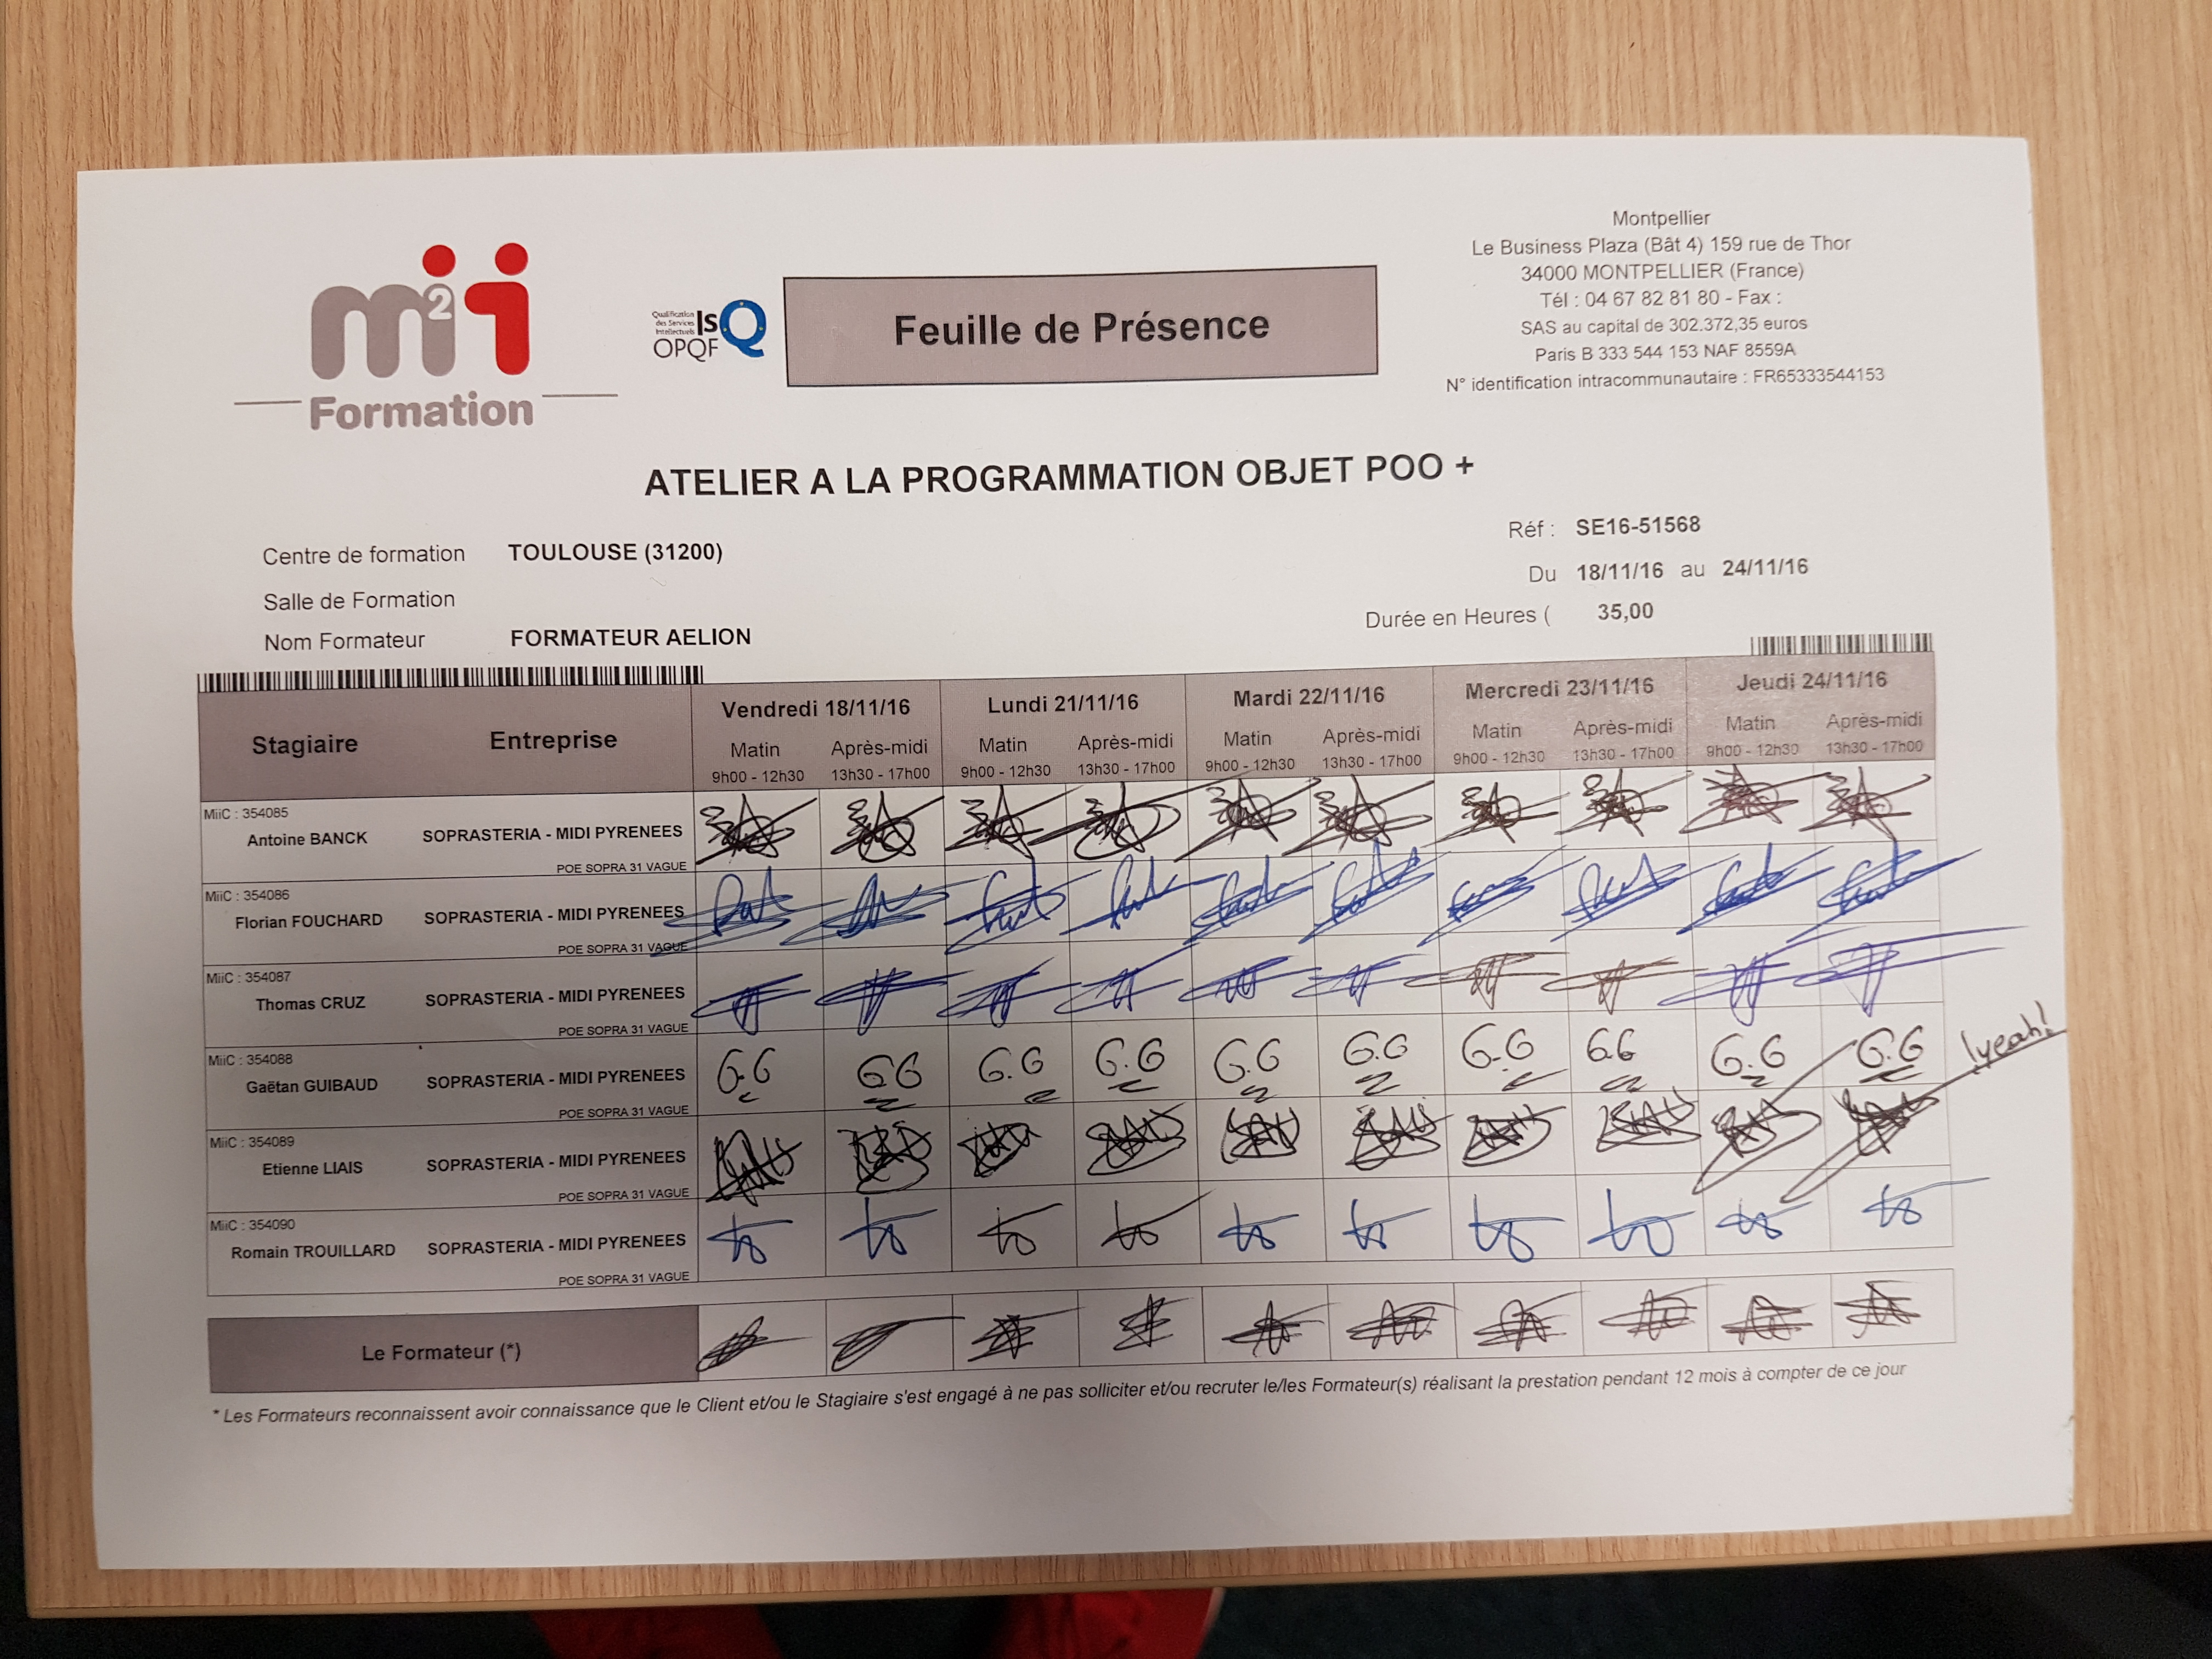 m2i
Formation
Qualification
des Services
Intellectuels
isQ
OPQF
Feuille de Présence
Montpellier
Le Business Plaza (Bât 4) 159 rue de Thor
34000 MONTPELLIER (France)
Tél : 04 67 82 81 80 - Fax :
SAS au capital de 302.372,35 euros
Paris B 333 544 153 NAF 8559A
N° identification intracommunautaire : FR65333544153
ATELIER A LA PROGRAMMATION OBJET POO +
Réf : SE16-51568
Centre de formation TOULOUSE (31200) Du 18/11/16 au 24/11/16
Salle de Formation
Durée en Heures ( 35,00
Nom Formateur FORMATEUR AELION
Stagiaire Entreprise Vendredi 18/11/16 Lundi 21/11/16 Mardi 22/11/16 Mercredi 23/11/16 Jeudi 24/11/16
Matin Après-midi Matin Après-midi Matin Après-midi Matin Après-midi Matin Après-midi
9h00 - 12h30 13h30 - 17h00 9h00 - 12h30 13h30 - 17h00 9h00 - 12h30 13h30 - 17h00 9h00 - 12h30 13h30 - 17h00 9h00 - 12h30 13h30 - 17h00
MiiC : 354085
Antoine BANCK SOPRASTERIA - MIDI PYRENEES
POE SOPRA 31 VAGUE
MiiC : 354086
Florian FOUCHARD SOPRASTERIA - MIDI PYRENEES
POE SOPRA 31 VAGUE
MiiC : 354087
Thomas CRUZ SOPRASTERIA - MIDI PYRENEES
POE SOPRA 31 VAGUE
MiiC : 354088
Gaëtan GUIBAUD SOPRASTERIA - MIDI PYRENEES G.G G.G G.G G.G G.G G.G G.G G.G G.G G.G yeah!
POE SOPRA 31 VAGUE
MiiC : 354089
Etienne LIAIS SOPRASTERIA - MIDI PYRENEES
POE SOPRA 31 VAGUE
MiiC : 354090
Romain TROUILLARD SOPRASTERIA - MIDI PYRENEES
POE SOPRA 31 VAGUE
Le Formateur (*)
* Les Formateurs reconnaissent avoir connaissance que le Client et/ou le Stagiaire s'est engagé à ne pas solliciter et/ou recruter le/les Formateur(s) réalisant la prestation pendant 12 mois à compter de ce jour